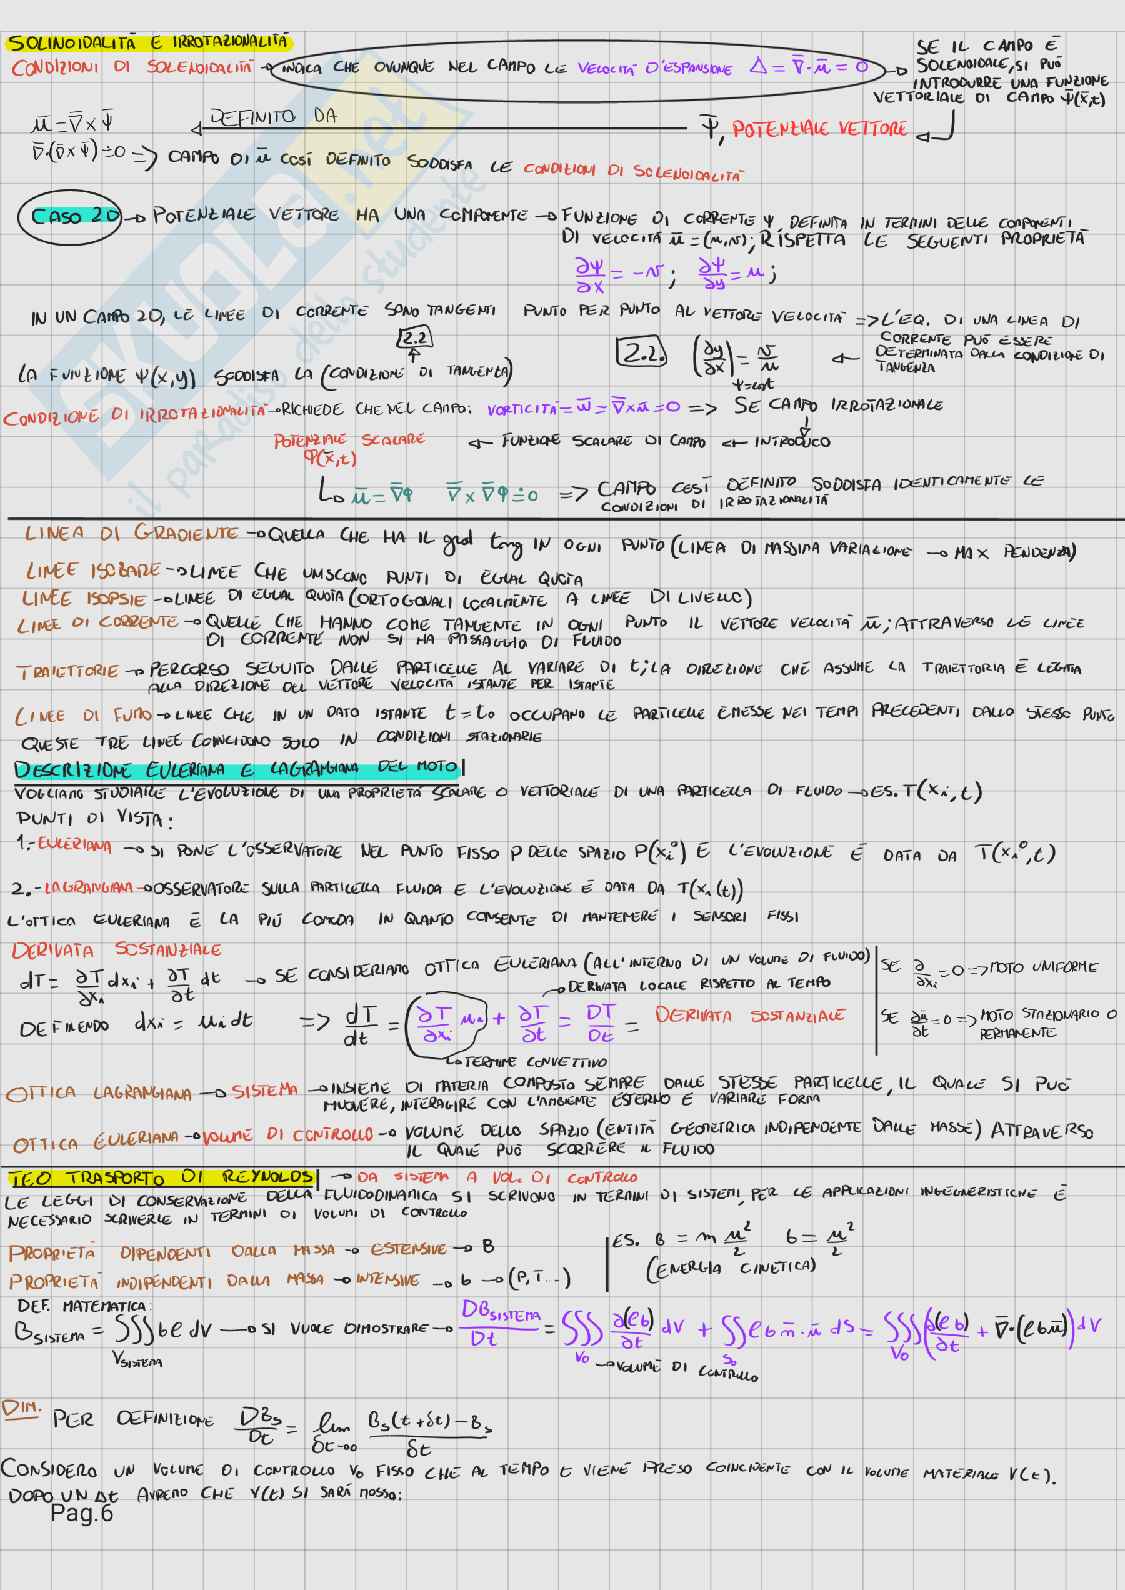 SOLINOIDALITÀ E IRROTAZIONALITÀ
CONDIZIONI DI SOLENOIDALITÀ → INDICA CHE OVUNQUE NEL CAMPO LE VELOCITÀ D'ESPANSIONE Δ = ∇̅·u̅ = 0 → SE IL CAMPO È
SOLENOIDALE, SI PUÒ
INTRODURRE UNA FUNZIONE
VETTORIALE DI CAMPO Ψ̅(x̅,t)
u̅ = ∇̅ x Ψ̅ ← DEFINITO DA Ψ̅, POTENZIALE VETTORE
∇̅·(∇̅ x Ψ̅) ≐ 0 => CAMPO DI u̅ COSÌ DEFINITO SODDISFA LE CONDIZIONI DI SOLENOIDALITÀ
CASO 2D → POTENZIALE VETTORE HA UNA COMPONENTE → FUNZIONE DI CORRENTE Ψ, DEFINITA IN TERMINI DELLE COMPONENTI
DI VELOCITÀ u̅ = (u,v); RISPETTA LE SEGUENTI PROPRIETÀ
∂Ψ/∂x = -v ; ∂Ψ/∂y = u ;
IN UN CAMPO 2D, LE LINEE DI CORRENTE SONO TANGENTI PUNTO PER PUNTO AL VETTORE VELOCITÀ => L'EQ. DI UNA LINEA DI
CORRENTE PUÒ ESSERE
DETERMINATA DALLA CONDIZIONE DI
TANGENZA
2.2
2.2. (∂y/∂x)Ψ=cost = v/u ←
LA FUNZIONE Ψ(x,y) SODDISFA LA (CONDIZIONE DI TANGENZA)
CONDIZIONE DI IRROTAZIONALITÀ → RICHIEDE CHE NEL CAMPO: VORTICITÀ = w̅ = ∇̅ x u̅ = 0 => SE CAMPO IRROTAZIONALE
POTENZIALE SCALARE ← FUNZIONE SCALARE DI CAMPO ← INTRODUCO
φ(x̅,t)
↳ u̅ = ∇̅φ ∇̅ x ∇̅φ ≐ 0 => CAMPO COSÌ DEFINITO SODDISFA IDENTICAMENTE LE
CONDIZIONI DI IRROTAZIONALITÀ
LINEA DI GRADIENTE → QUELLA CHE HA IL grad tang IN OGNI PUNTO (LINEA DI MASSIMA VARIAZIONE → MAX PENDENZA)
LINEE ISOBARE → LINEE CHE UNISCONO PUNTI DI EGUAL QUOTA
LINEE ISOPSIE → LINEE DI EGUAL QUOTA (ORTOGONALI LOCALMENTE A LINEE DI LIVELLO)
LINEE DI CORRENTE → QUELLE CHE HANNO COME TANGENTE IN OGNI PUNTO IL VETTORE VELOCITÀ u̅; ATTRAVERSO LE LINEE
DI CORRENTE NON SI HA PASSAGGIO DI FLUIDO
TRAIETTORIE → PERCORSO SEGUITO DALLE PARTICELLE AL VARIARE DI t; LA DIREZIONE CHE ASSUME LA TRAIETTORIA È LEGATA
ALLA DIREZIONE DEL VETTORE VELOCITÀ ISTANTE PER ISTANTE
LINEE DI FUMO → LINEE CHE IN UN DATO ISTANTE t = t₀ OCCUPANO LE PARTICELLE EMESSE NEI TEMPI PRECEDENTI DALLO STESSO PUNTO
QUESTE TRE LINEE COINCIDONO SOLO IN CONDIZIONI STAZIONARIE
DESCRIZIONE EULERIANA E LAGRANGIANA DEL MOTO
VOGLIAMO STUDIARE L'EVOLUZIONE DI UNA PROPRIETÀ SCALARE O VETTORIALE DI UNA PARTICELLA DI FLUIDO → ES. T(xᵢ, t)
PUNTI DI VISTA:
1.- EULERIANA → SI PONE L'OSSERVATORE NEL PUNTO FISSO P DELLO SPAZIO P(xᵢ⁰) E L'EVOLUZIONE È DATA DA T(xᵢ⁰, t)
2.- LAGRANGIANA → OSSERVATORE SULLA PARTICELLA FLUIDA E L'EVOLUZIONE È DATA DA T(xᵢ(t))
L'OTTICA EULERIANA È LA PIÙ COMODA IN QUANTO CONSENTE DI MANTENERE I SENSORI FISSI
DERIVATA SOSTANZIALE
dT = ∂T/∂xᵢ dxᵢ + ∂T/∂t dt → SE CONSIDERIAMO OTTICA EULERIANA (ALL'INTERNO DI UN VOLUME DI FLUIDO)
SE ∂/∂xᵢ = 0 => MOTO UNIFORME
→ DERIVATA LOCALE RISPETTO AL TEMPO
DEFINENDO dxᵢ = uᵢ dt => dT/dt = ∂T/∂xᵢ uᵢ + ∂T/∂t = DT/Dt = DERIVATA SOSTANZIALE
SE ∂u̅/∂t = 0 => MOTO STAZIONARIO O
PERMANENTE
↳ TERMINE CONVETTIVO
OTTICA LAGRANGIANA → SISTEMA → INSIEME DI MATERIA COMPOSTO SEMPRE DALLE STESSE PARTICELLE, IL QUALE SI PUÒ
MUOVERE, INTERAGIRE CON L'AMBIENTE ESTERNO E VARIARE FORMA
OTTICA EULERIANA → VOLUME DI CONTROLLO → VOLUME DELLO SPAZIO (ENTITÀ GEOMETRICA INDIPENDENTE DALLE MASSE) ATTRAVERSO
IL QUALE PUÒ SCORRERE IL FLUIDO
TEO TRASPORTO DI REYNOLDS → DA SISTEMA A VOL. DI CONTROLLO
LE LEGGI DI CONSERVAZIONE DELLA FLUIDODINAMICA SI SCRIVONO IN TERMINI DI SISTEMI, PER LE APPLICAZIONI INGEGNERISTICHE È
NECESSARIO SCRIVERLE IN TERMINI DI VOLUMI DI CONTROLLO
PROPRIETÀ DIPENDENTI DALLA MASSA → ESTENSIVE → B
ES. B = m u²/2 b = u²/2
(ENERGIA CINETICA)
PROPRIETÀ INDIPENDENTI DALLA MASSA → INTENSIVE → b → (P, T...)
DEF. MATEMATICA:
B_SISTEMA = ∭_V_SISTEMA bρ dV → SI VUOLE DIMOSTRARE → DB_SISTEMA/Dt = ∭_V₀ ∂(ρb)/∂t dV + ∬_S₀ ρb n̅·u̅ dS = ∭_V₀ (∂(ρb)/∂t + ∇̅·(ρbu̅)) dV
→ VOLUME DI CONTROLLO
DIM. PER DEFINIZIONE DB_s/Dt = lim_δt→0 B_s(t+δt) - B_s / δt
CONSIDERO UN VOLUME DI CONTROLLO V₀ FISSO CHE AL TEMPO t VIENE PRESO COINCIDENTE CON IL VOLUME MATERIALE V(t).
DOPO UN Δt AVREMO CHE V(t) SI SARÀ MOSSO:
Pag.6
SKUOLA.net
il paradiso dello studente